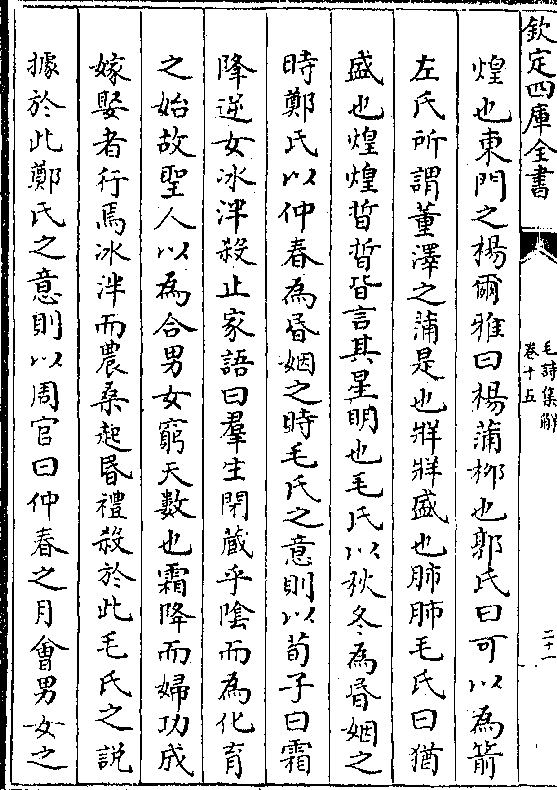 欽定四庫全書
毛詩集解
卷十五
二十一
煌也東門之楊爾雅曰楊蒲栁也郭氏曰可以為箭
左氏所謂董澤之蒲是也牂牂盛也肺肺毛氏曰猶
盛也煌煌晢晢皆言其星明也毛氏以秋冬為昏姻之
時鄭氏以仲春為昏姻之時毛氏之意則以荀子曰霜
降逆女冰泮殺止家語曰羣生閉藏乎陰而為化育
之始故聖人以為合男女窮天數也霜降而婦功成
嫁娶者行焉冰泮而農桑起昏禮殺於此毛氏之説
據於此鄭氏之意則以周官曰仲春之月會男女之